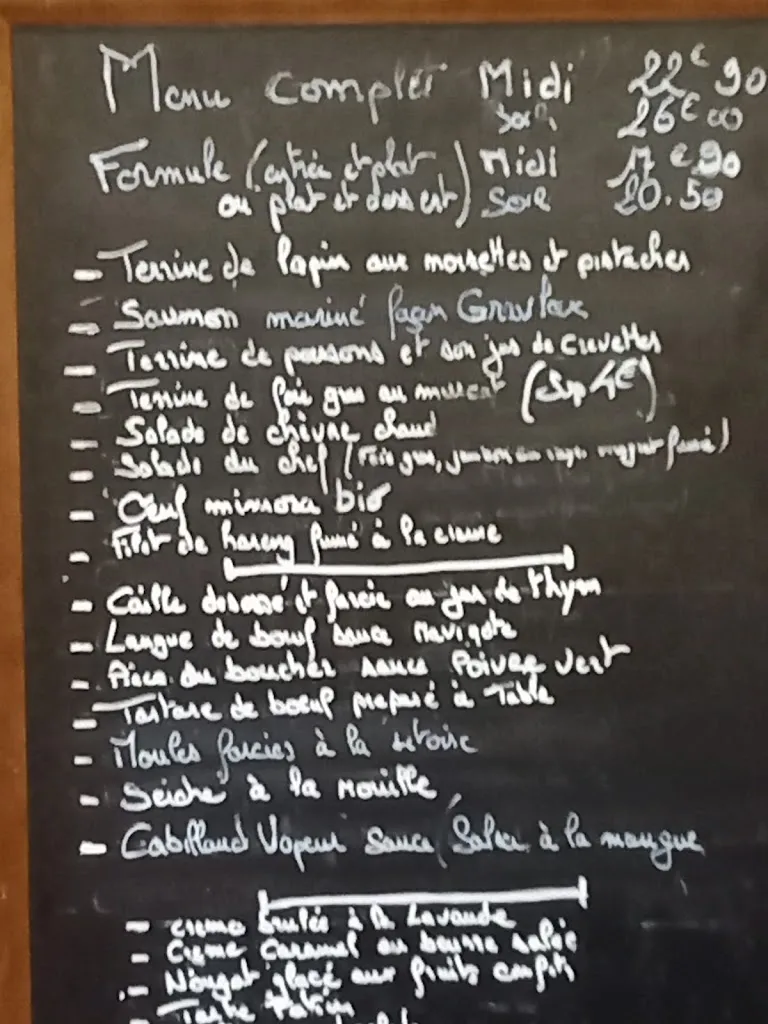 Menu Complet Midi 22€90
Soir 26€00
Formule (entrée et plat Midi 17€90
ou plat et dessert) Soir 20.50
- Terrine de lapin aux noisettes et pistaches
- Saumon mariné façon Gravlax
- Terrine de poissons et son jus de crevettes
- Terrine de foie gras au muscat (Sup 4€)
- Salade de chèvre chaud
- Salade du chef (Foie gras, jambon magret fumé)
- Oeuf mimosa bio
- Filet de hareng fumé à la crème
- Caille desossé et farcie au jus de thym
- Langue de boeuf sauce Ravigote
- Pièce du boucher sauce Poivre vert
- Tartare de boeuf préparé à Table
- Moules farcies à la sétoise
- Seiche à la Rouille
- Cabillaud Vapeur sauce Salsa à la mangue
- crème brulée à la Lavande
- Crème Caramel au beurre salée
- Nougat glacé aux fruits confits
- Tarte Tatin